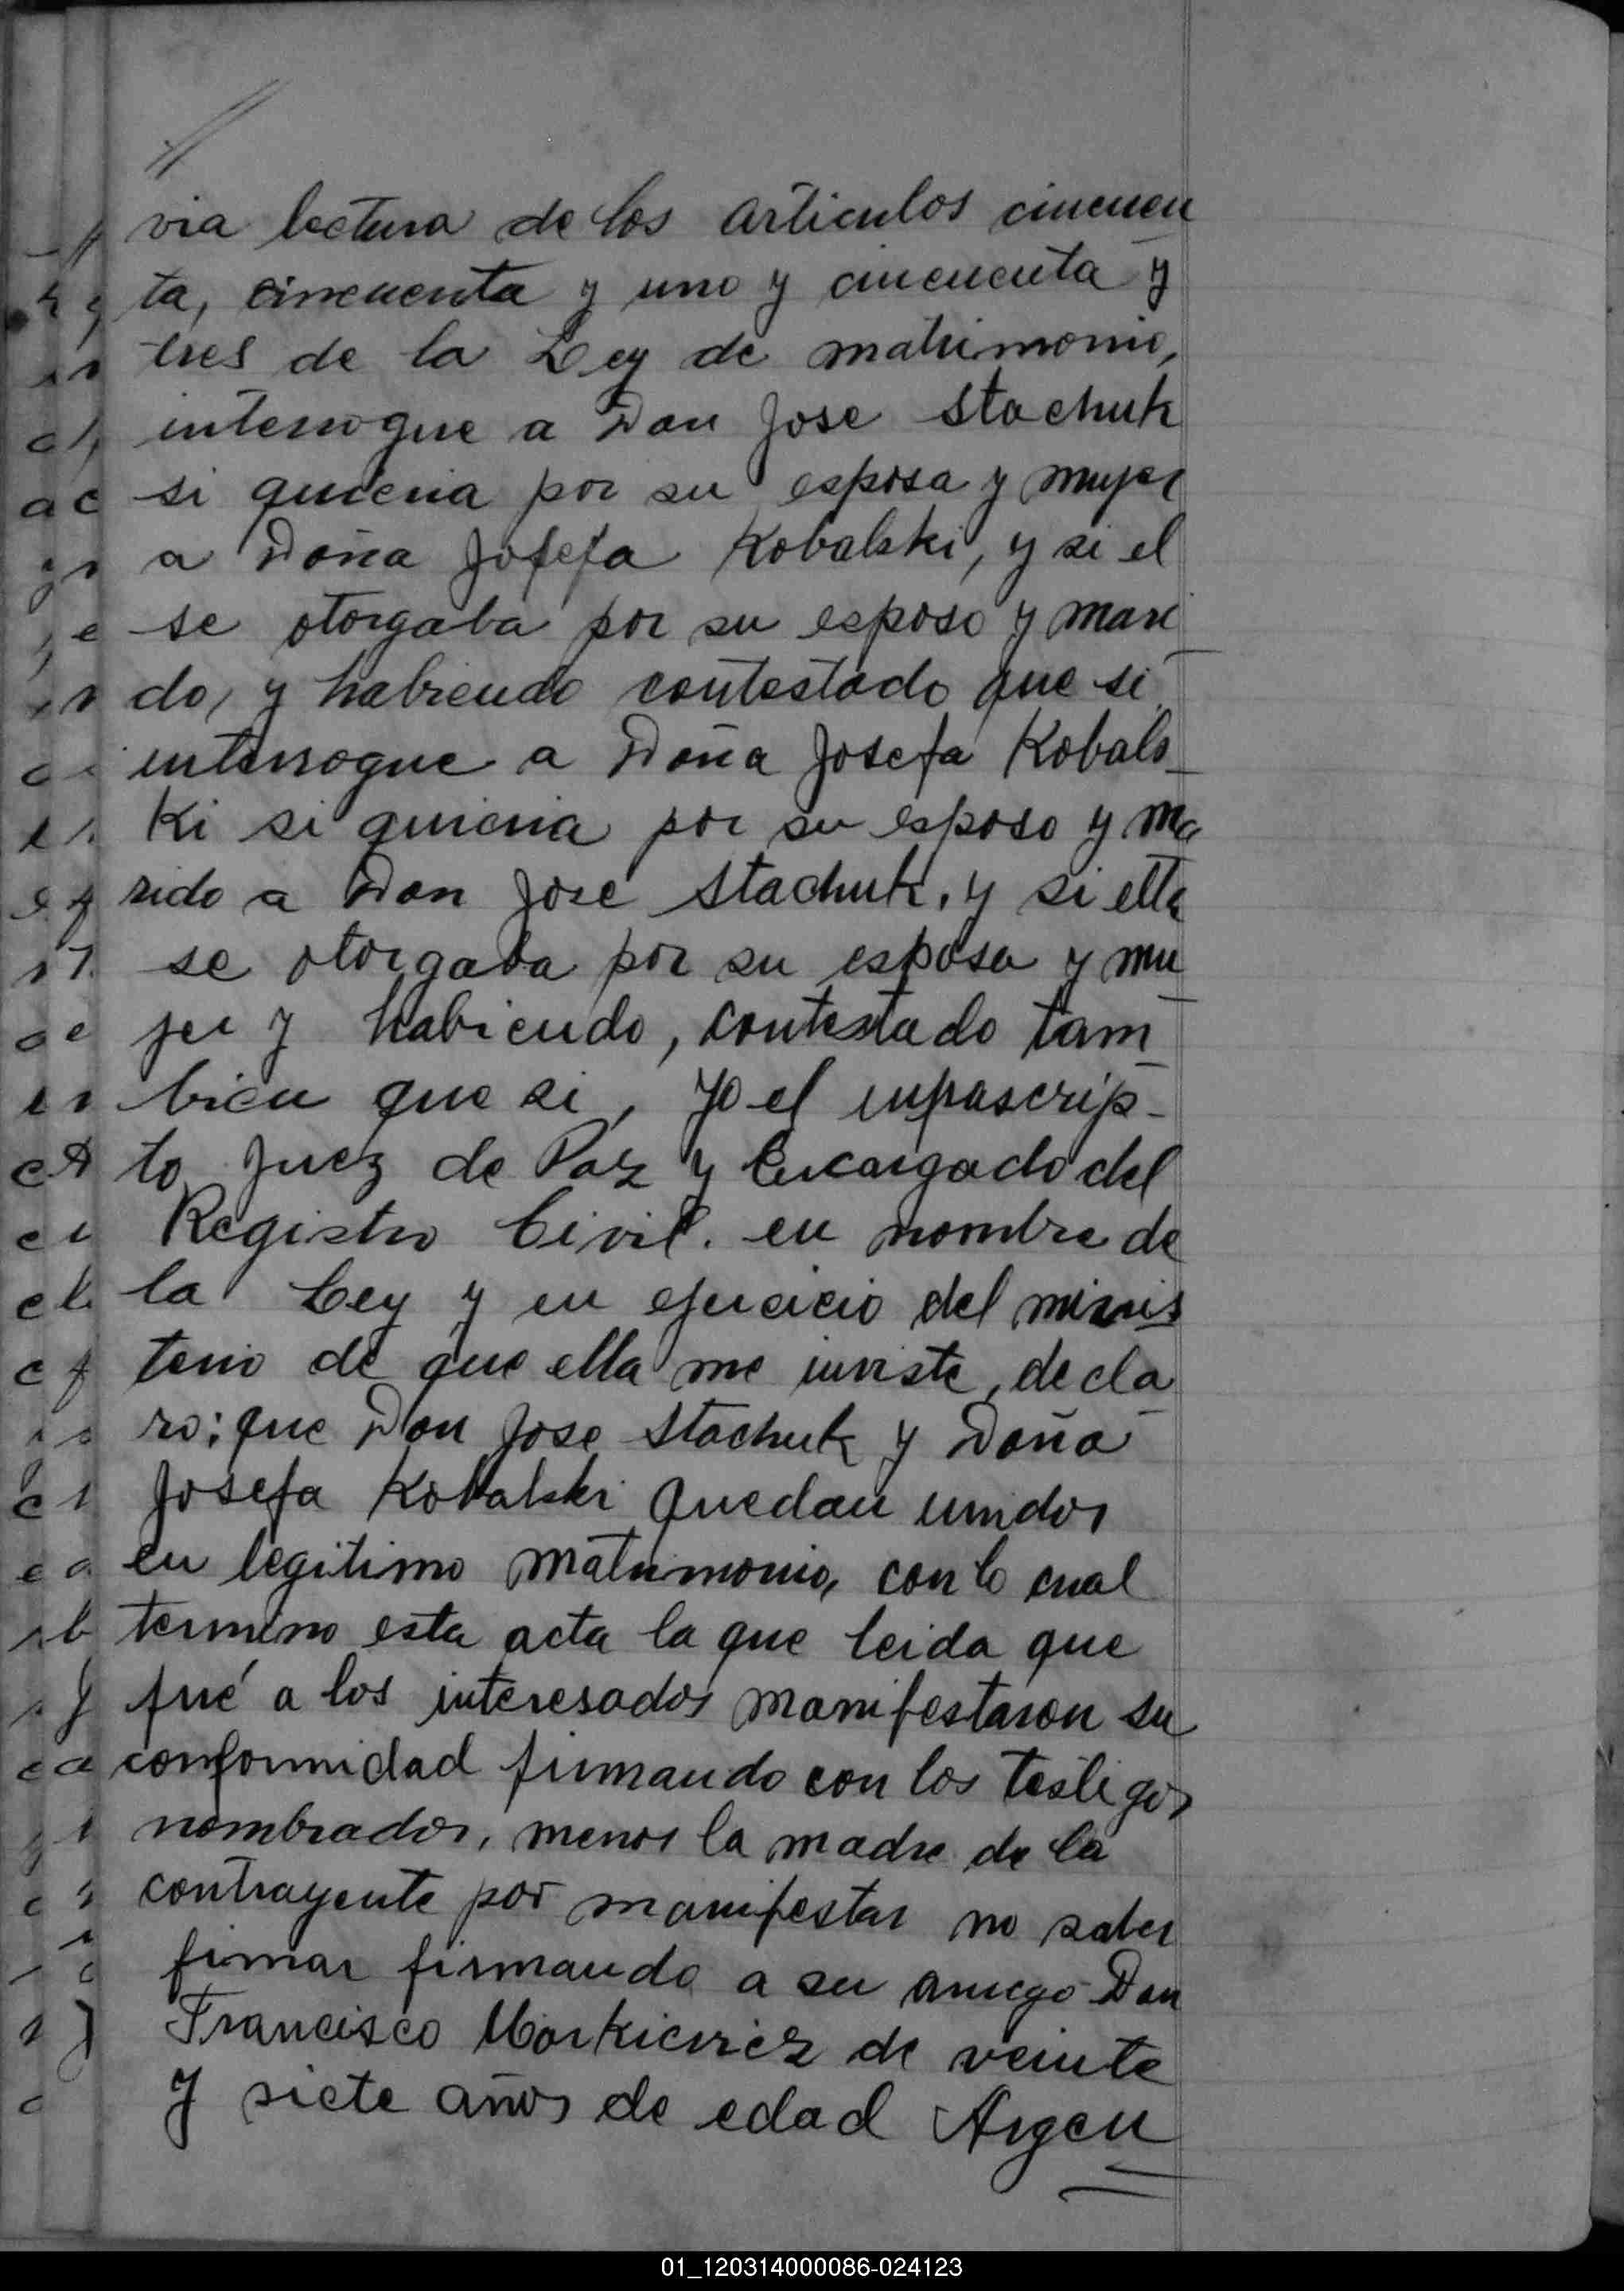 via lectura de los articulos cincuen
ta, cincuenta y uno y cincuenta y
tres de la Ley de matrimonio,
interrogue a Don Jose Stachuk
si queria por su esposa y mujer
a Doña Josefa Kobalski, y si el
se otorgaba por su esposo y mari
do, y habiendo contestado que si
interrogue a Doña Josefa Kobals
ki si queria por su esposo y ma
rido a Don Jose Stachuk, y si ella
se otorgaba por su esposa y mu
jer y habiendo, contestado tam
bien que si, Yo el infrascrip-
to Juez de Paz y Encargado del
Registro Civil. en nombre de
la Ley y en ejercicio del minis
terio de que ella me inviste, decla
ro: que Don Jose Stachuk y Doña
Josefa Kobalski quedan unidos
en legitimo matrimonio, con lo cual
termino esta acta la que leida que
fué a los interesados manifestaron su
conformidad firmando con los testigos
nombrados, menos la madre de la
contrayente por manifestar no saber
firmar firmando a su amigo Don
Francisco de veinte
y siete años de edad Argen
01_120314000086-024123